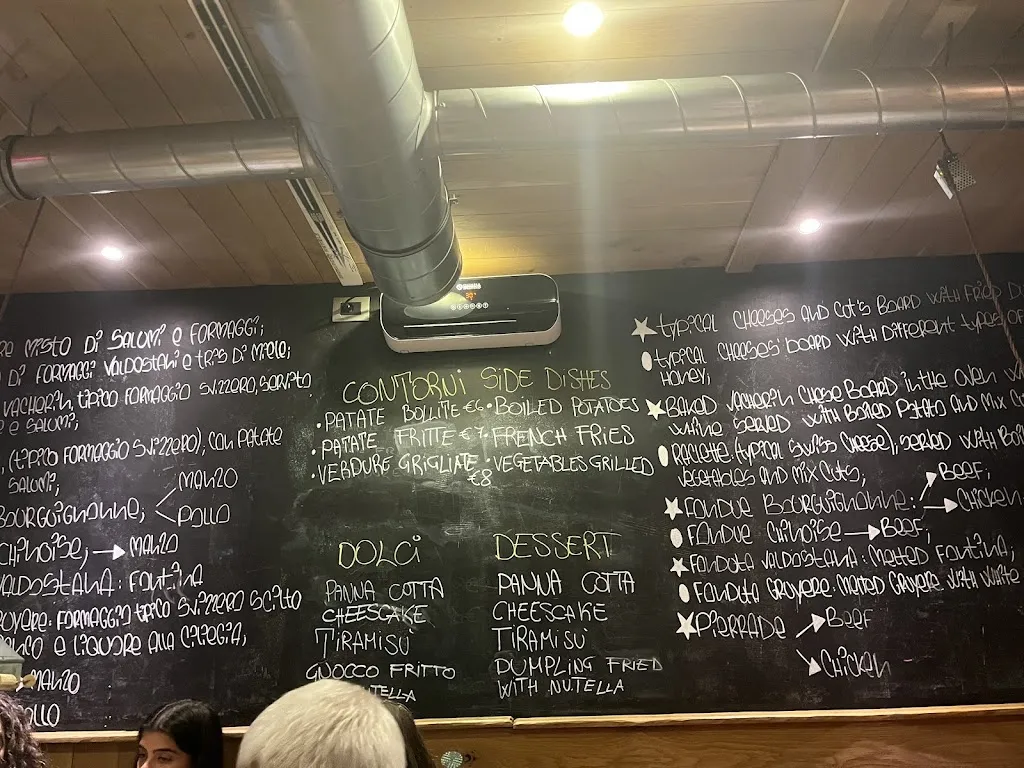 RE MISTO DI SALUMI E FORMAGGI;
DI FORMAGGI VALDOSTANI E TRIS DI MIELE;
VACHERIN, TIPICO FORMAGGIO SVIZZERO, SERVITO
E E SALUMI;
(TIPICO FORMAGGIO SVIZZERO), CON PATATE
SALUMI;
MANZO
BOURGUIGNONNE;
POLLO
CHINOISE; → MANZO
VALDOSTANA: FONTINA
FORMAGGIO TIPICO SVIZZERO SCIOLTO
E LIQUORE ALLA CILIEGIA;
MANZO
OLLO
CONTORNI SIDE DISHES
• PATATE BOLLITE €6 • BOILED POTATOES
• PATATE FRITTE €7 • FRENCH FRIES
• VERDURE GRIGLIATE • VEGETABLES GRILLED
€8
DOLCI
PANNA COTTA
CHEESCAKE
TIRAMISÙ
GNOCCO FRITTO
TELLA
DESSERT
PANNA COTTA
CHEESCAKE
TIRAMISÙ
DUMPLING FRIED
WITH NUTELLA
TYPICAL CHEESES AND COT'S BOARD WITH FRIED
TYPICAL CHEESES' BOARD WITH DIFFERENT TYPES OF
HONEY;
BAKED VACHERIN CHEESE BOARD IN THE OVEN
WINE SERVED WITH BOILED POTATO AND MIX
RACLETTE (TYPICAL SWISS CHEESE), SERVED WITH
VEGETABLES AND MIX CUTS;
BEEF;
FONDUE BOURGUIGNONNE:
CHICKEN
FONDUE CHINOISE → BEEF;
FONDUTA VALDOSTANA: MELTED FONTINA;
FONDUTA GRUYERE: MELTED GRUYERE WITH WHITE
PIERRADE → BEEF
CHICKEN